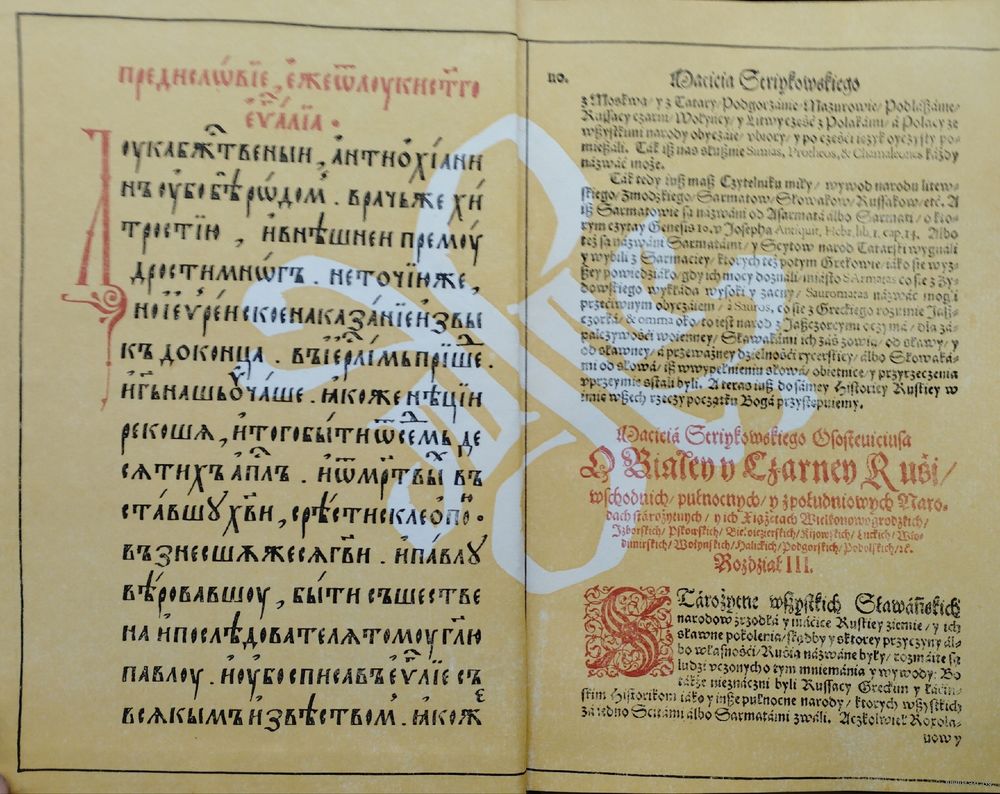 предисло́вїе, є҆́же ѿ лоукие с҃тго
є҆ѵⷢ҇а́лїа ·
Лоука бж҃твеныи, а҆нтиѡхїа́ни
нъ оу҆́бо бѣ́ рѡ́домⷨ. врачь же хи́
тростїю, и҆ внѣ́шнеи премоу́
дрости мнѡ́гъ. не точїю же,
но и҆ є҆vре́иское наказа́нїе и҆звы
къ до конца. въ і҆ерⷭ҇ли́мъ прїи́ше.
и҆ г҃ь нашь оу҆ча́ше. ꙗ҆коже нѣ́цїи
рекошѧ, и҆ тогобы́ти ѿ семь де
сѧтихъ а҆пⷭ҇лъ. и҆ ѿ мр҃твы́хъ въ
ста́вшу х҃ви, срѣ́сти с клео́пою.
възнесшꙋ́жесѧ г҃ви. и҆ па́влꙋ
вѣ́ровавшоу, бы́ти съшестве
на и҆ послѣ́дователѧ томоу гл҃ю
павлоу. и҆ оу҆бо списа въ є҆ѵⷢ҇лїе съ
всѧкымъ и҆звѣ́ствомⷨ. ꙗ҆коже
no. Macieia Stryikowskiego
z Moskwą/ y z Tatary/ Podgorzánie/ Mazurowie/ Podlászánie/
Russacy czarni/ Wołyńcy/ y Litwy część z Polakámi/ á Polacy ze
wszystkimi narody obyczáie/ vbiory/ y po części ięzyk oyczysty po-
mieszáli. Ták iż nas słusznie Simias, Protheos, & Chamaleontes káżdy
názwáć może.
Ták tedy iuż masz Czytelniku miły/ wywod narodu litew-
skiego/ Zmodzkiego/ Sarmatow/ Słowakow/ Russakow/ etć. A
iż Sarmatowie są názwáni od Asarmatá álbo Sarmati/ o kto-
rym czytay Genesis 10. y Josephá Antiquit. Hebr. lib. 1. cap. 14. Albo
też są názwáni Sarmatámi/ y Scytow narod Tatarski wygnáli
y wybili z Sarmaciey/ ktorych też potym Grekowie/ iáko się wyż-
szey powiedziáło/ gdy ich mocy doználi/ miásto Sarmatas co się z Ży-
dowskiego wykłáda wysoki y zacny/ Sauromatas názwáć mogli
przećiwnym obyczáiem/ á Sauros, co się z Greckiego rozumie Jász-
czorká/ & omma oko/ to iest narod z Jászczorymi oczymá/ dla zá-
pálczywości woienney/ Słáwakámi ich záś zowią/ od sławy/ y
od sławney/ á przeważney dzielności rycerskiey/ álbo Słowaká-
mi od słowá/ iż w wypełnieniu słowá/ obietnice/ y przyrzeczenia
vprzeymie sstali byli. A teraz iuż do sámey Historiey Ruskiey w
imię wszech rzeczy początku Bogá przystępuiemy.
Macieiá Stryikowskiego Ososteviciusa
O Białey y Czarney Ruśi/
wschodnich/ pułnocnych/ y z południowych Naro-
dach stárożytnych/ y ich Xiążętach Wielkonowogrodzkich/
Izborskich/ Pskowskich/ Białoiezierskich/ Kijowskich/ Łuckich/ Wło-
dimirskich/ Wołynskich/ Halickich/ Podgorskich/ Podolskich/ ić.
Rozdział III.
Stárożytne wszystkich Sławáńskich
narodow źrzodłá y máćice Ruskiey ziemie/ y ich
sławne pokolenia/ skądby y z ktorey przyczyny ál-
bo własności/ Rusią názwáne były/ rozmáite są
ludzi vczonych o tym mniemánia y wywody: Bo
tákże nieznáczni byli Russacy Grekom y Łáciń-
skim Historikom iáko y insze pułnocne narody/ ktorych wszystkich
zá iedno Scitámi álbo Sarmatámi zwáli. Aczkolwiek Roxola-
nowy